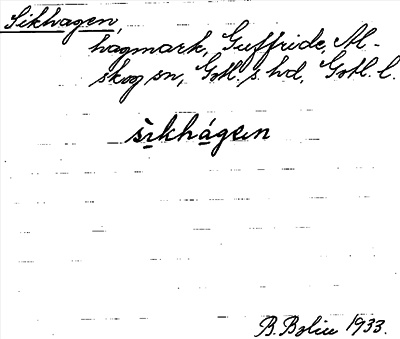 Sikhagen,
hagmark, Guffride, Al-
skog sn, Gotl. s. hd, Gotl. l.
sı̲khá̲gen
B. Bolin 1933.